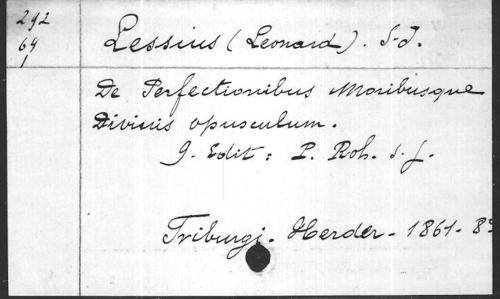 292
64
1
Lessius (Leonard). S-J.
De Perfectionibus Moribusque
Divinis opusculum.
9. Edit: P. Roh. s.j.
Friburgi. Herder - 1861- 8º